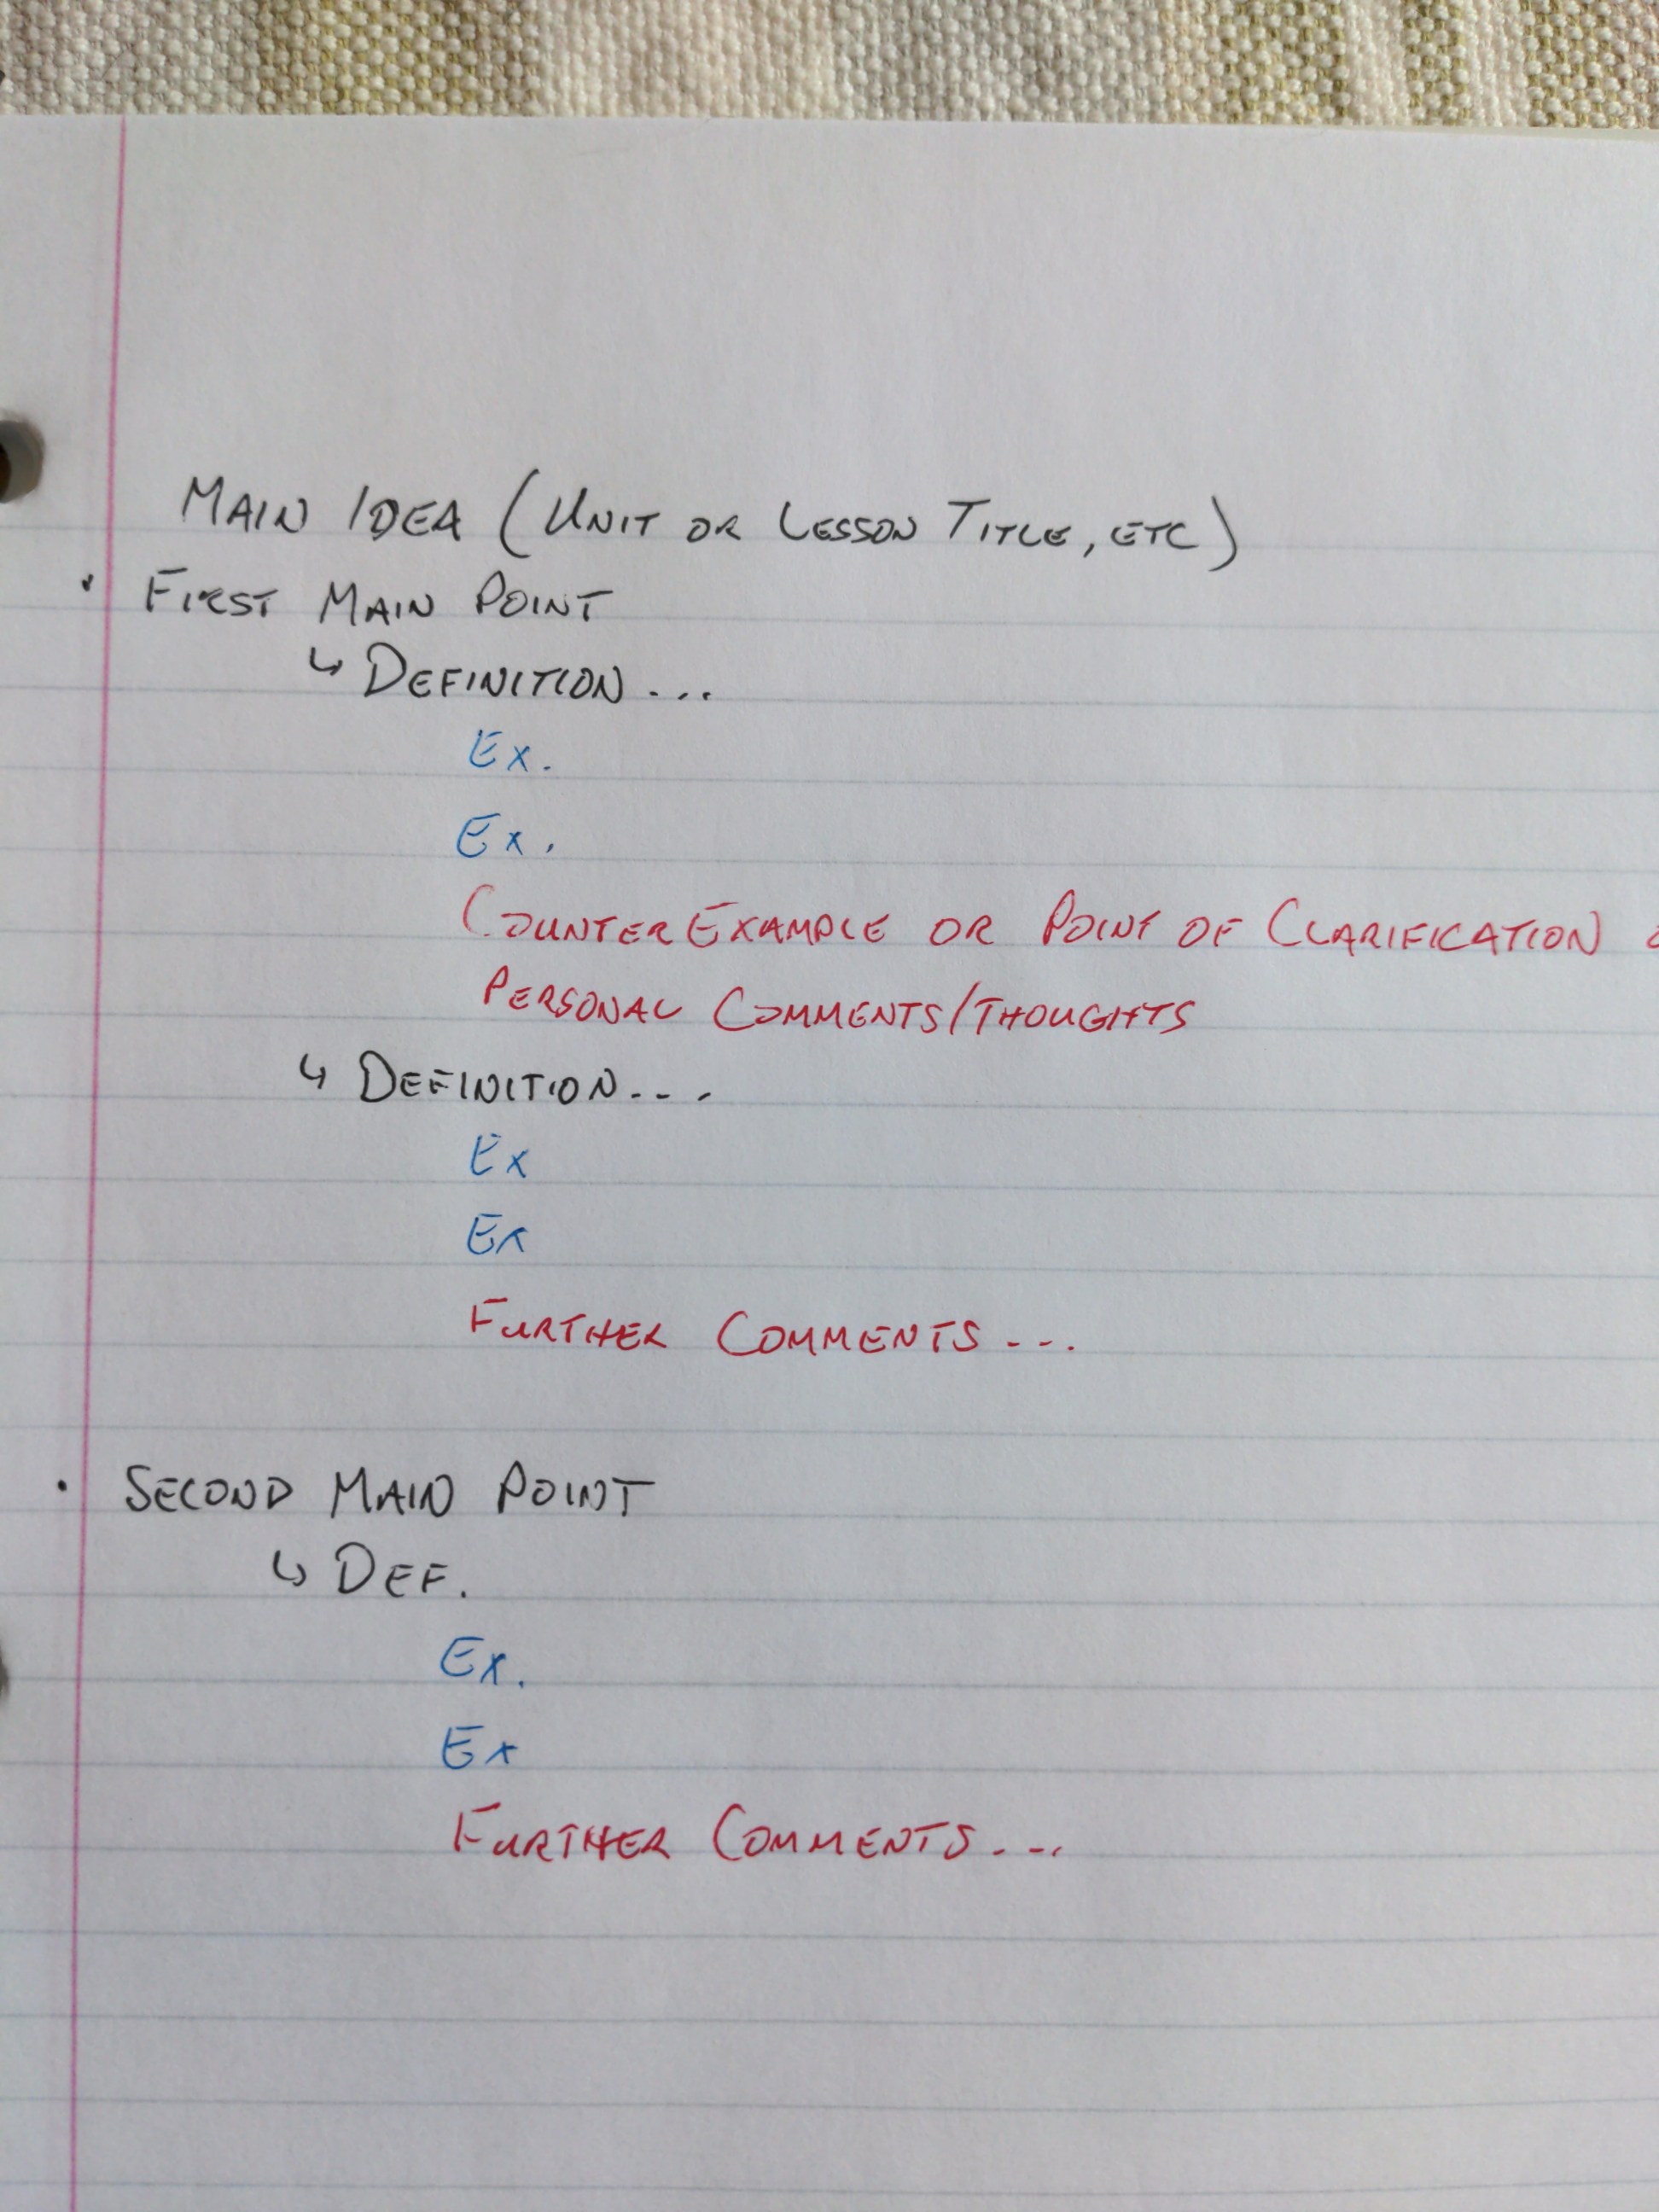 MAIN IDEA (UNIT OR LESSON TITLE, ETC)
• FIRST MAIN POINT
↳ DEFINITION...
EX.
EX.
COUNTER EXAMPLE OR POINT OF CLARIFICATION
PERSONAL COMMENTS/THOUGHTS
↳ DEFINITION...
EX
EX
FURTHER COMMENTS...
• SECOND MAIN POINT
↳ DEF.
EX.
EX
FURTHER COMMENTS...